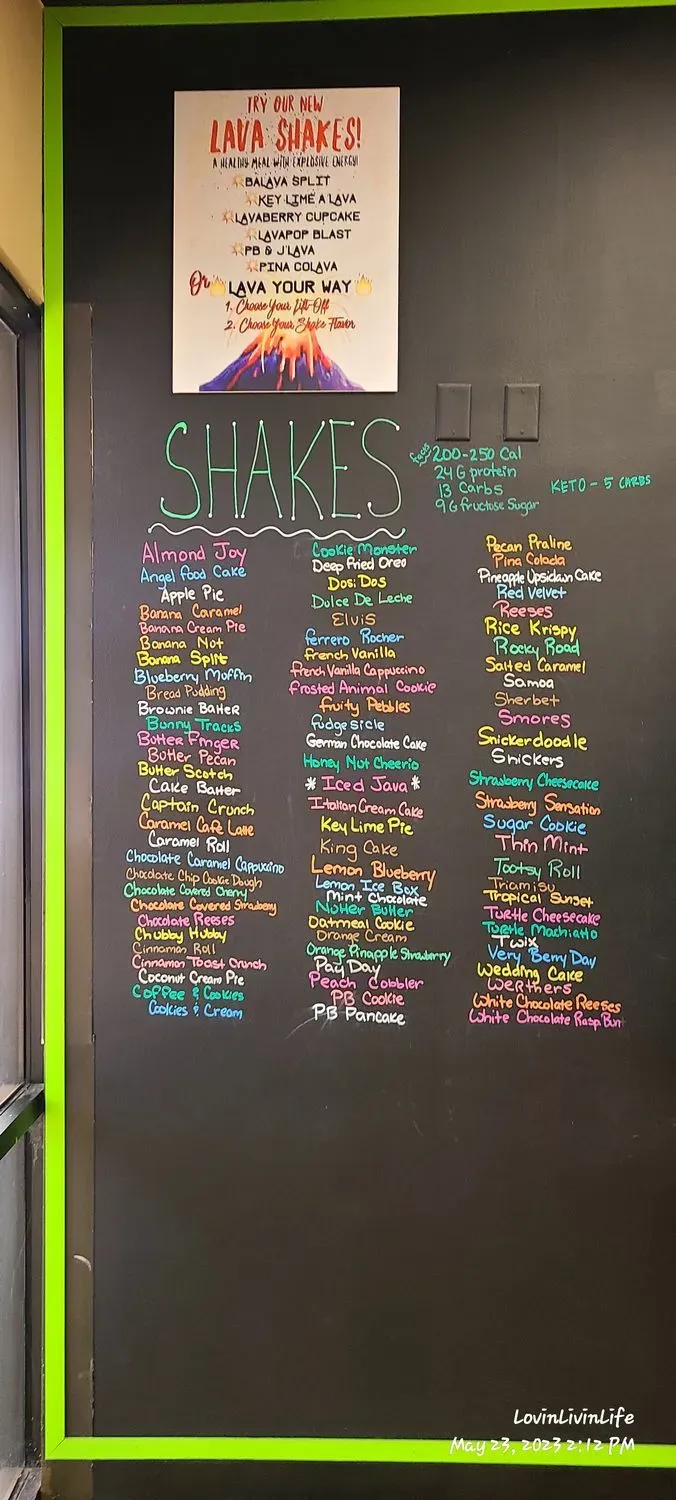 TRY OUR NEW
LAVA SHAKES!
A HEALTHY MEAL WITH EXPLOSIVE ENERGY!
BALAVA SPLIT
KEY LIME A'LAVA
LAVABERRY CUPCAKE
LAVAPOP BLAST
PB & J'LAVA
PINA COLAVA
Or LAVA YOUR WAY
1. Choose Your Lift-Off
2. Choose Your Shake Flavor
SHAKES
facts
200-250 Cal
24 G protein
13 Carbs
9 G fructose Sugar
KETO - 5 CARBS
Almond Joy
Angel food Cake
Apple Pie
Banana Caramel
Banana Cream Pie
Banana Nut
Banana Split
Blueberry Muffin
Bread Pudding
Brownie Batter
Bunny Tracks
Butter Finger
Butter Pecan
Butter Scotch
Cake Batter
Captain Crunch
Caramel Cafe Latte
Caramel Roll
Chocolate Caramel Cappucino
Chocolate Chip Cookie Dough
Chocolate Covered Cherry
Chocolate Covered Strawberry
Chocolate Reeses
Chubby Hubby
Cinnamon Roll
Cinnamon Toast Crunch
Coconut Cream Pie
Coffee & Cookies
Cookies & Cream
Cookie Monster
Deep Fried Oreo
Dos:Dos
Dulce De Leche
Elvis
ferrero Rocher
french Vanilla
french Vanilla Cappuccino
frosted Animal Cookie
fruity Pebbles
fudgesicle
German Chocolate Cake
Honey Nut Cheerio
* Iced Java *
Italian Cream Cake
Key Lime Pie
King Cake
Lemon Blueberry
Lemon Ice Box
Mint Chocolate
Nutter Butter
Oatmeal Cookie
Orange Cream
Orange Pinapple Strawberry
Pay Day
Peach Cobbler
PB Cookie
PB Pancake
Pecan Praline
Pina Colada
Pineapple Upsidown Cake
Red Velvet
Reeses
Rice Krispy
Rocky Road
Salted Caramel
Samoa
Sherbet
Smores
Snickerdoodle
Snickers
Strawberry Cheesecake
Strawberry Sensation
Sugar Cookie
Thin Mint
Tootsy Roll
Triamisu
Tropical Sunset
Turtle Cheesecake
Turtle Machiatto
Twix
Very Berry Day
Wedding Cake
Werthers
White Chocolate Reeses
White Chocolate Rasp Bun
LovinLivinLife
May 23, 2023 2:12 PM